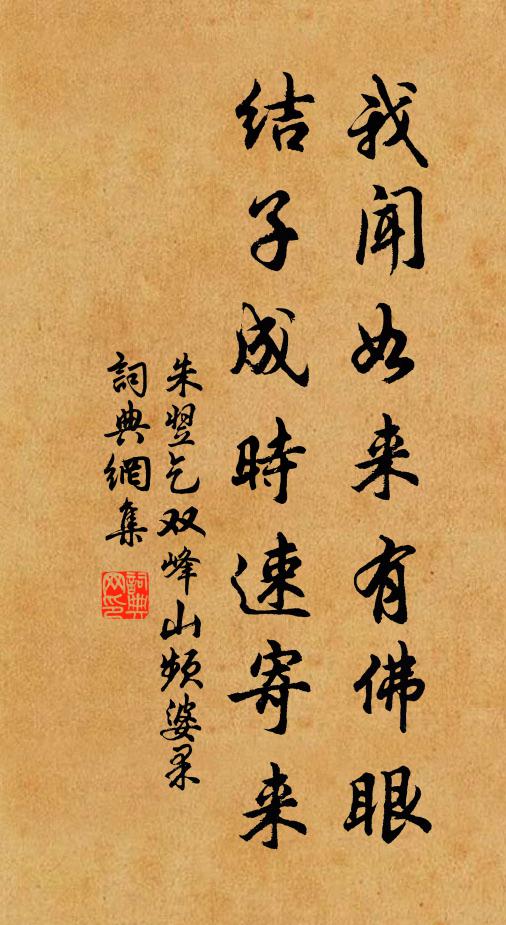 我闻如来有佛眼
结子成時速寄来
朱翌乞双峰山频婆果
詞典網集
詞典网印